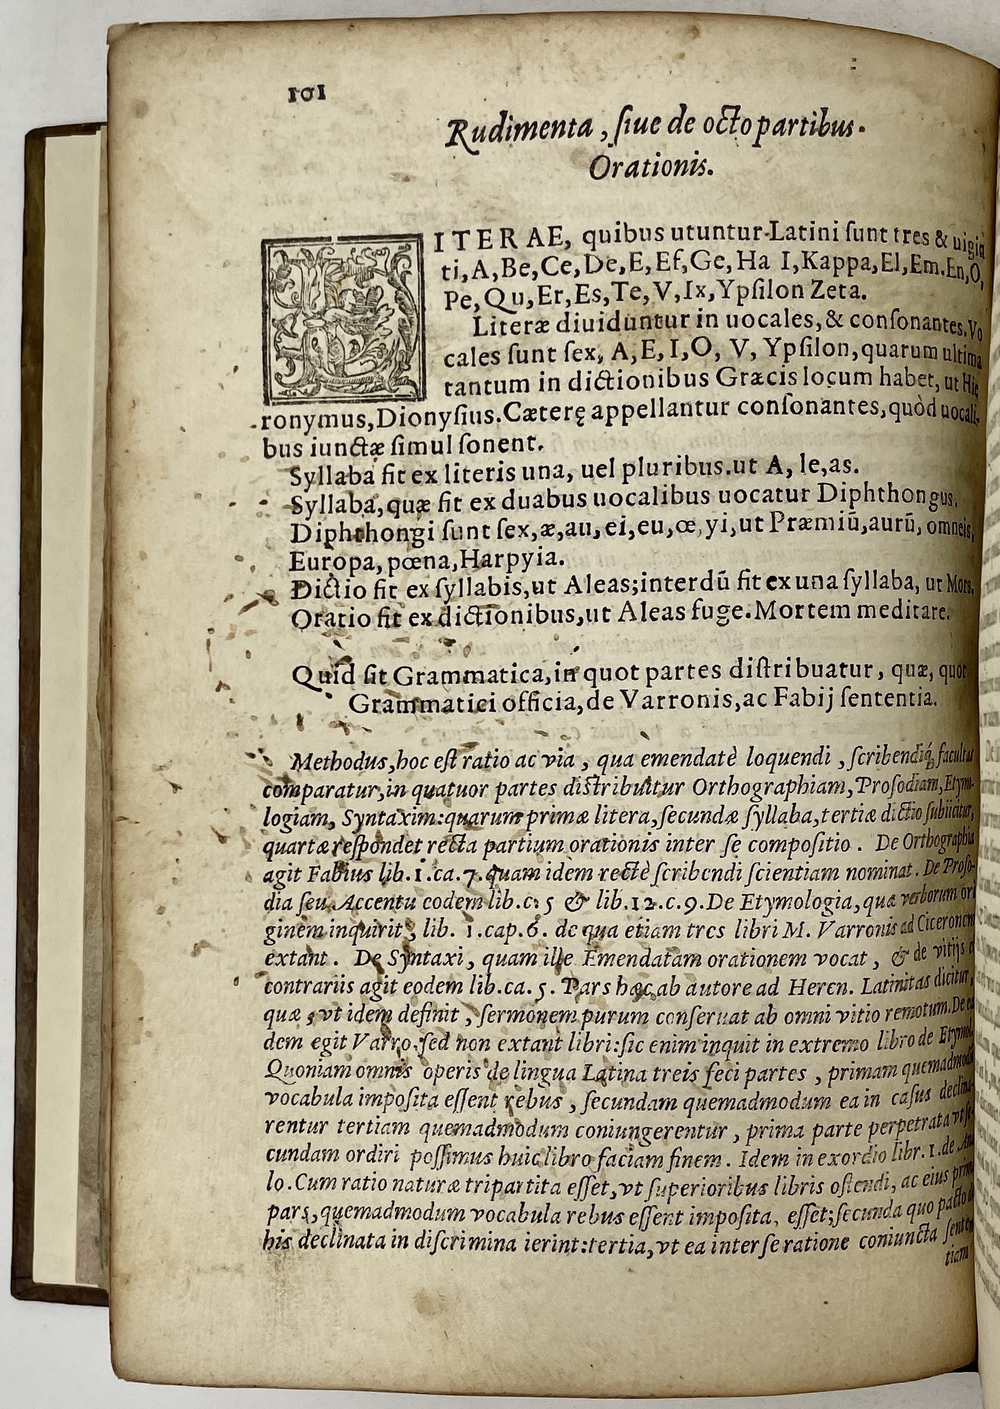 101
Rudimenta, ſiue de octo partibus.
Orationis.
LITERAE, quibus utuntur Latini ſunt tres & uigin
ti, A, Be, Ce, De, E, Ef, Ge, Ha I, Kappa, El, Em. En, O,
Pe, Qu, Er, Es, Te, V, Ix, Ypſilon Zeta.
Literæ diuiduntur in uocales, & conſonantes. Vo
cales ſunt ſex, A, E, I, O, V, Ypſilon, quarum ultima
tantum in dictionibus Græcis locum habet, ut Hie
ronymus, Dionyſius. Cæterę appellantur conſonantes, quòd uocali-
bus iunctæ ſimul ſonent.
Syllaba fit ex literis una, uel pluribus. ut A, le, as.
Syllaba, quæ fit ex duabus uocalibus uocatur Diphthongus.
Diphthongi ſunt ſex, æ, au, ei, eu, œ, yi, ut Præmiū, aurū, omneis,
Europa, pœna, Harpyia.
Dictio fit ex ſyllabis, ut Aleas; interdū fit ex una ſyllaba, ut Mors.
Oratio fit ex dictionibus, ut Aleas fuge. Mortem meditare.
Quid ſit Grammatica, in quot partes diſtribuatur, quæ, quot
Grammatici officia, de Varronis, ac Fabij ſententia.
Methodus, hoc eſt ratio ac via, qua emendatè loquendi, ſcribendiq́; facultas
comparatur, in quatuor partes diſtribuitur Orthographiam, Proſodiam, Etymo-
logiam, Syntaxim: quarum primæ litera, ſecundæ ſyllaba, tertiæ dictio ſubiicitur,
quartæ reſpondet recta partium orationis inter ſe compoſitio. De Orthographia
agit Fabius lib. 1. ca. 7. quam idem rectè ſcribendi ſcientiam nominat. De Proſo-
dia ſeu Accentu eodem lib. c. 5 & lib. 12. c. 9. De Etymologia, quæ verborum ori
ginem inquirit, lib. 1. cap. 6. de qua etiam tres libri M. Varronis ad Ciceronem
extant. De Syntaxi, quam ille Emendatam orationem vocat, & de vitijs ei
contrariis agit eodem lib. ca. 5. Pars hæc ab autore ad Heren. Latinitas dicitur,
quæ, vt idem definit, ſermonem purum conſeruat ab omni vitio remotum. De ea
dem egit Varro, ſed non extant libri: ſic enim inquit in extremo libro de Etymol.
Quoniam omnis operis de lingua Latina treis feci partes, primam quemadmodum
vocabula impoſita eſſent rebus, ſecundam quemadmodum ea in caſus declina-
rentur tertiam quemadmodum coniungerentur, prima parte perpetrata vt ſe-
cundam ordiri poſſimus huic libro faciam finem. Idem in exordio libr. 1. de Ana
lo. Cum ratio naturæ tripartita eſſet, vt ſuperioribus libris oſtendi, ac eius prima
pars, quemadmodum vocabula rebus eſſent impoſita, eſſet; ſecunda quo pacto de
his declinata in diſcrimina ierint: tertia, vt ea inter ſe ratione coniuncta ſenten
tiam